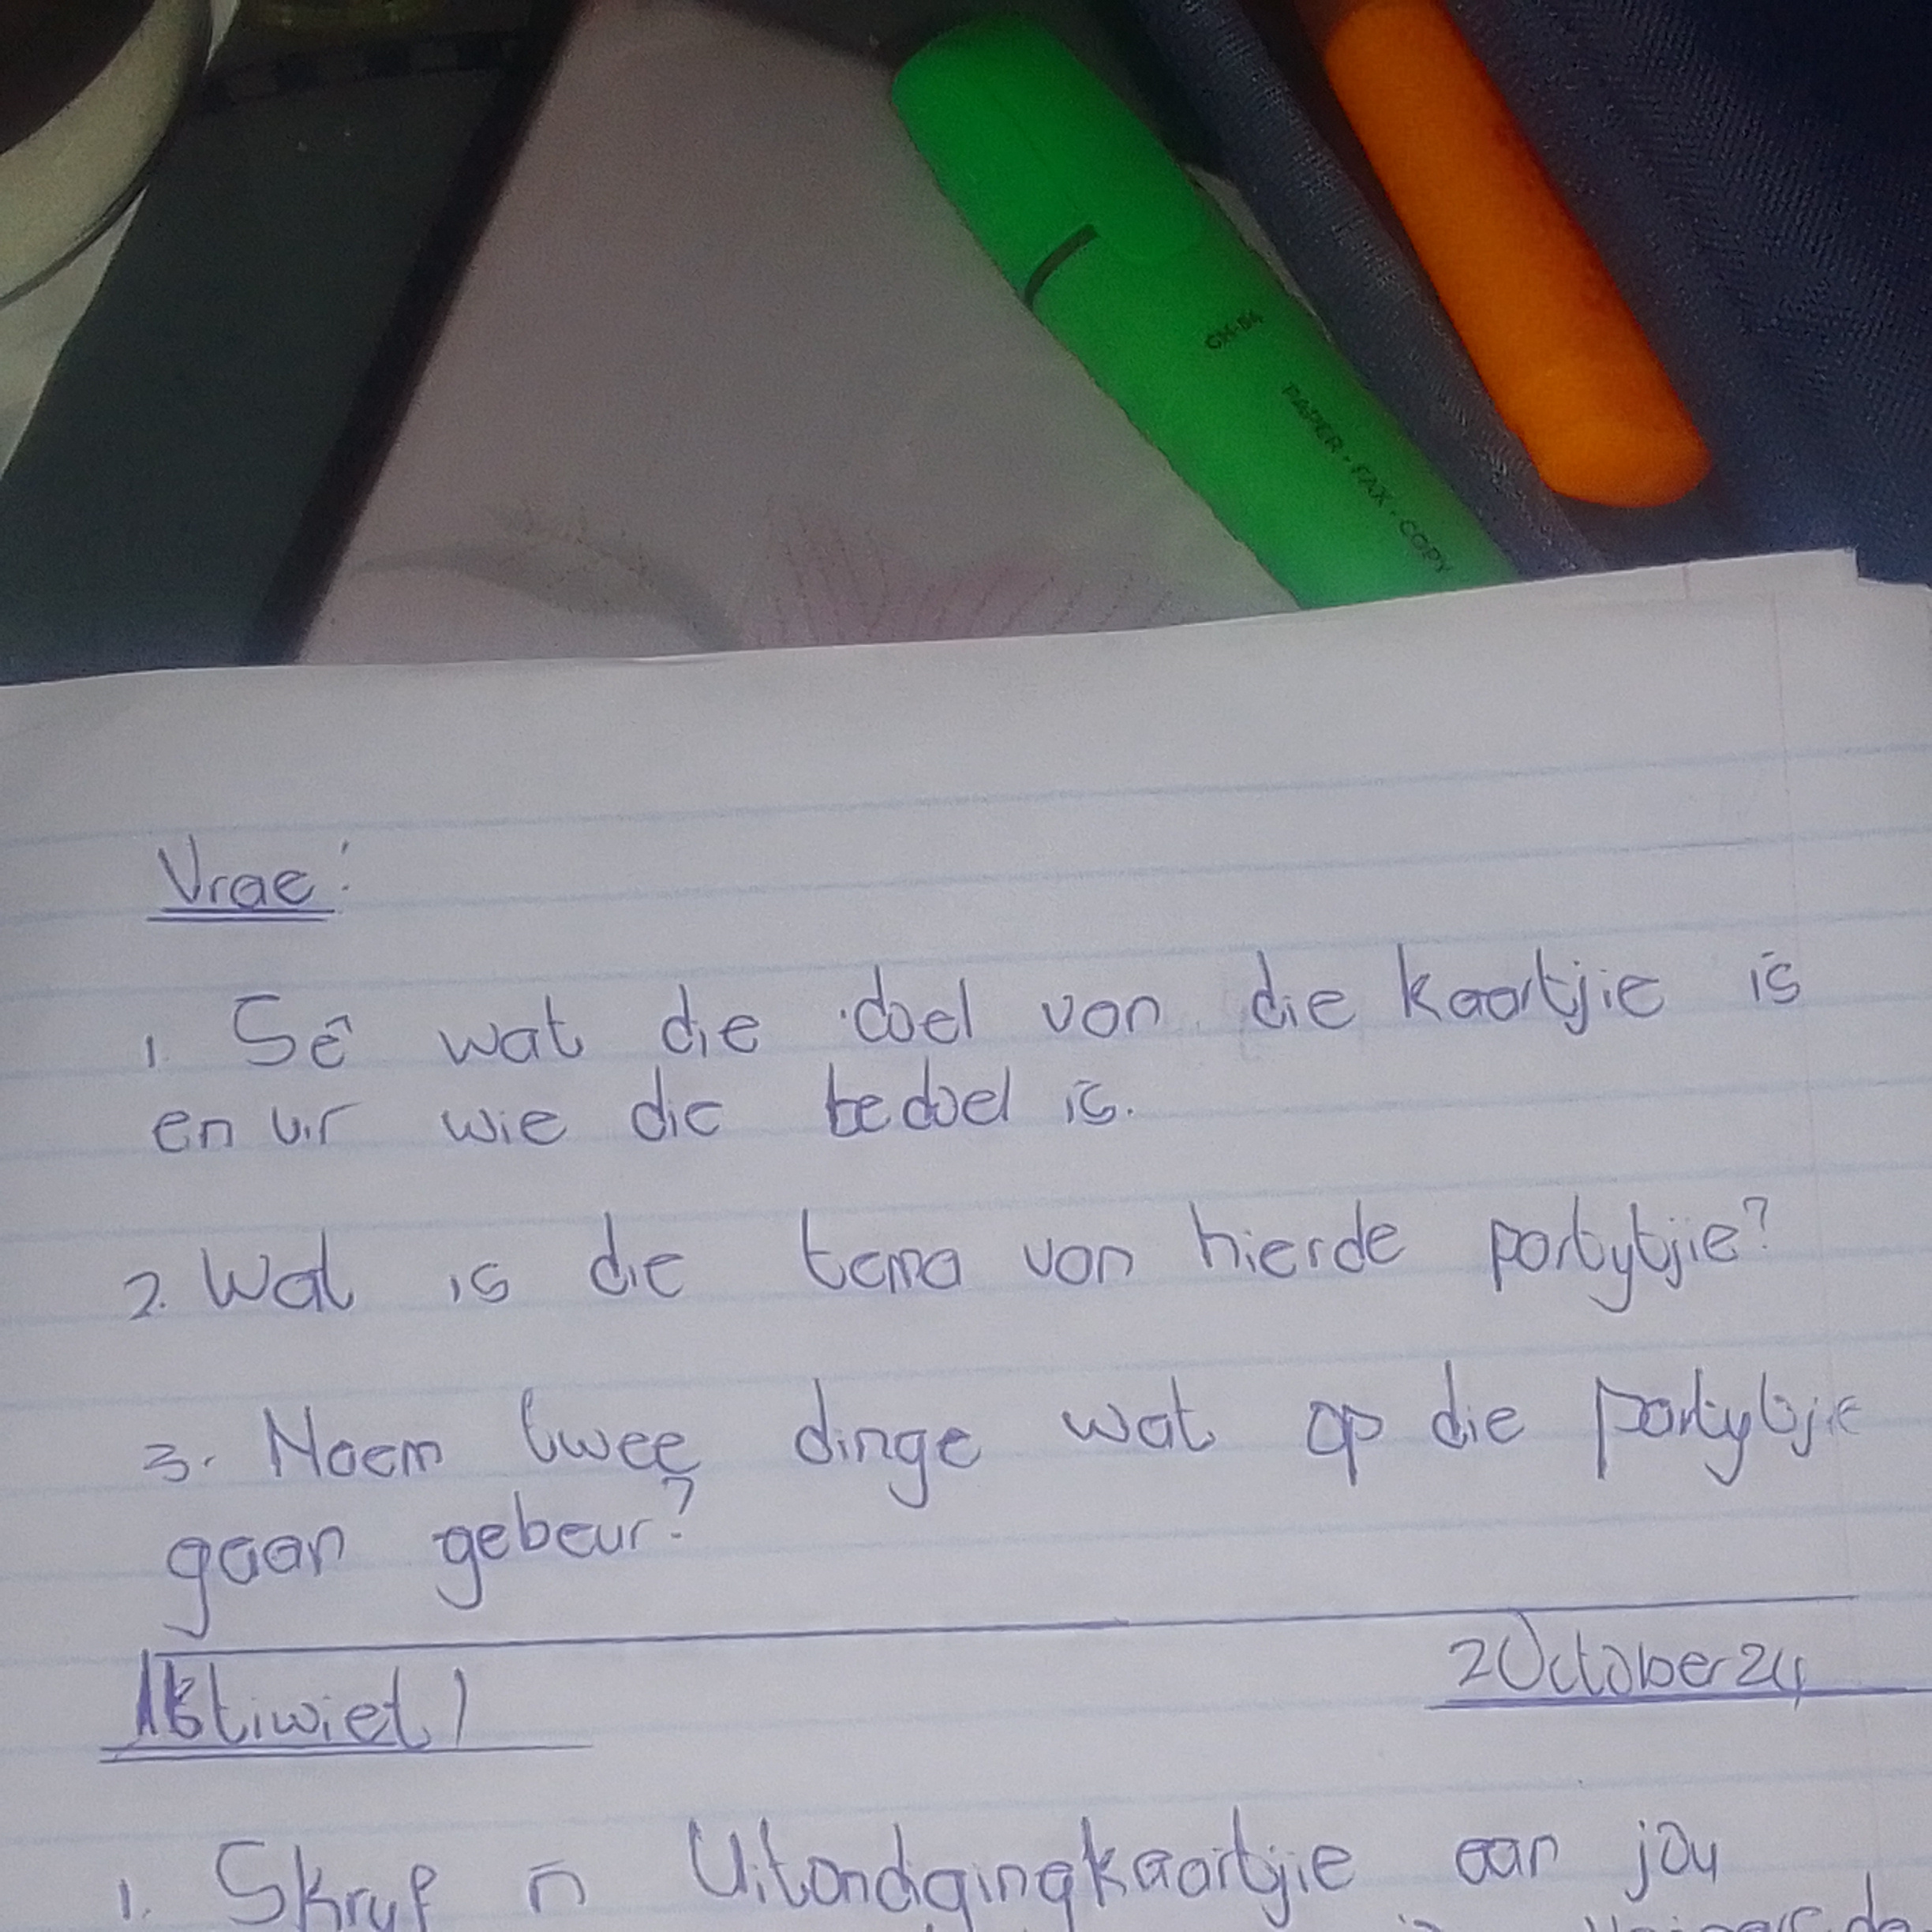 PAPER - FAX - COPY
Vrae:
1. Sê wat die doel von die kaartjie is
en vir wie die bedoel is.
2. Wat is die tema von hierde partytjie?
3. Noem twee dinge wat op die partytjie
gaan gebeur?
Aktiwiet 1
2 October 24
1. Skryf n Uitondigingkaartjie aan jou